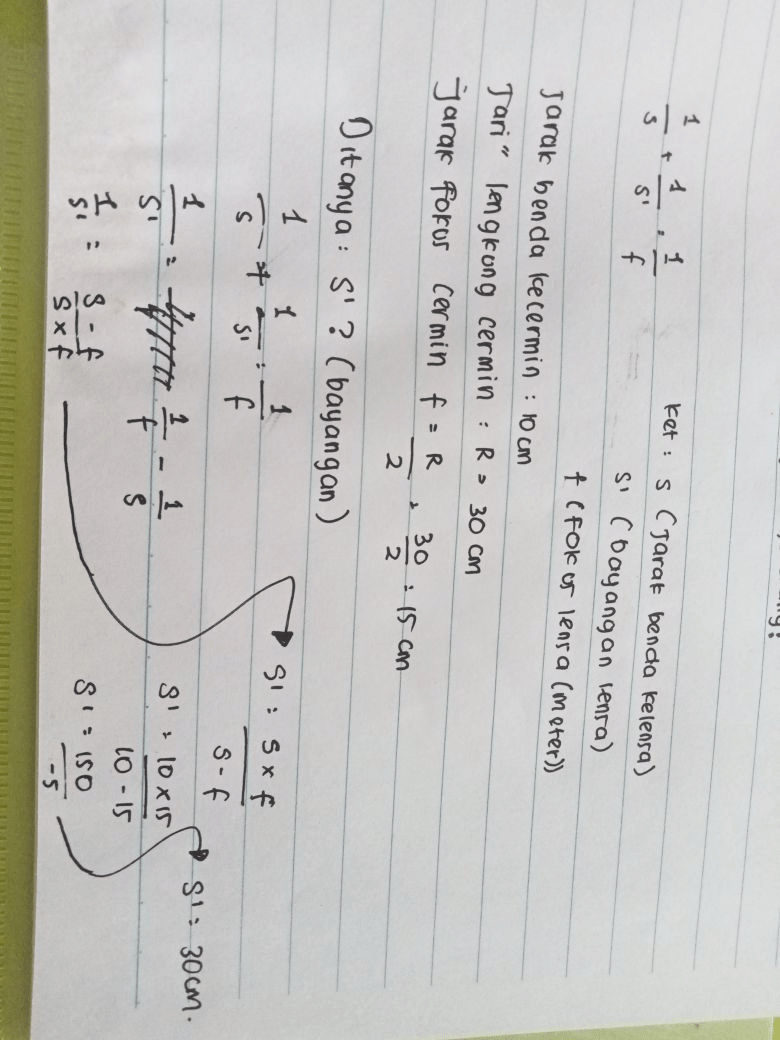 1/s + 1/s' = 1/f
Ket : s (Jarak benda kelensa)
s' (bayangan lensa)
f (fokus lensa (meter))
Jarak benda kecermin : 10 cm
Jari" lengkung cermin : R = 30 cm
Jarak fokus cermin f = R/2 = 30/2 = 15 cm
Ditanya : S' ? (bayangan)
1/s + 1/s' = 1/f
1/s' = 1/f - 1/s
1/s' = s - f / s x f
S' = s x f / s - f
S' = 10 x 15 / 10 - 15
S' = 150 / -5
S' = 30 cm.